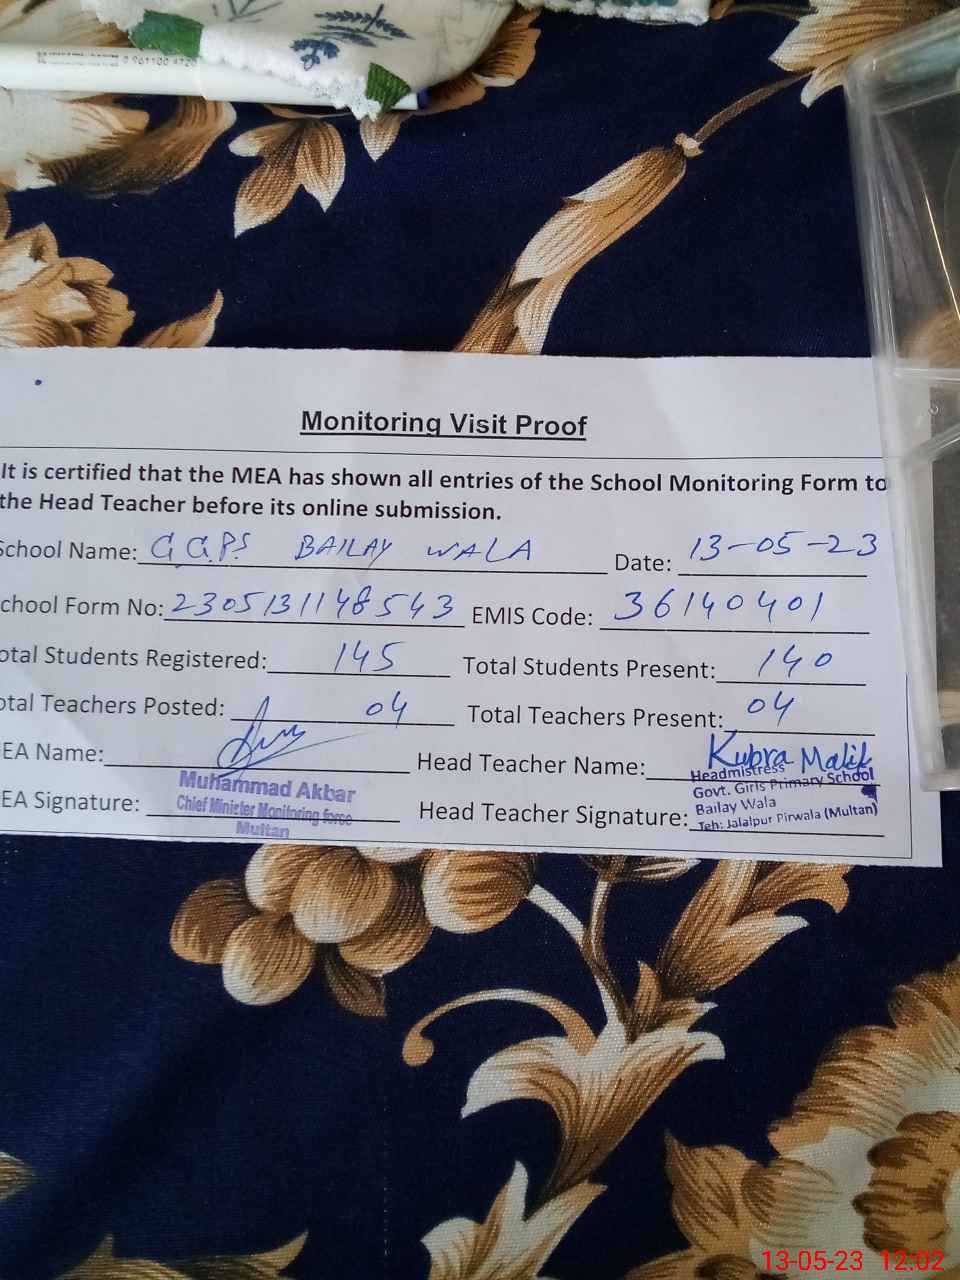 0 961100 4720
Monitoring Visit Proof
It is certified that the MEA has shown all entries of the School Monitoring Form to
the Head Teacher before its online submission.
School Name: GGPS BAILAY WALA Date: 13-05-23
chool Form No: 2305131148543 EMIS Code: 36140401
otal Students Registered: 145 Total Students Present: 140
otal Teachers Posted: 04 Total Teachers Present: 04
EA Name: Head Teacher Name: Kubra Malik
EA Signature: Muhammad Akbar
Chief Minister Monitoring force
Multan
Head Teacher Signature: Headmistress
Govt. Girls Primary School
Bailay Wala
Teh: Jalalpur Pirwala (Multan)
13-05-23 12:02